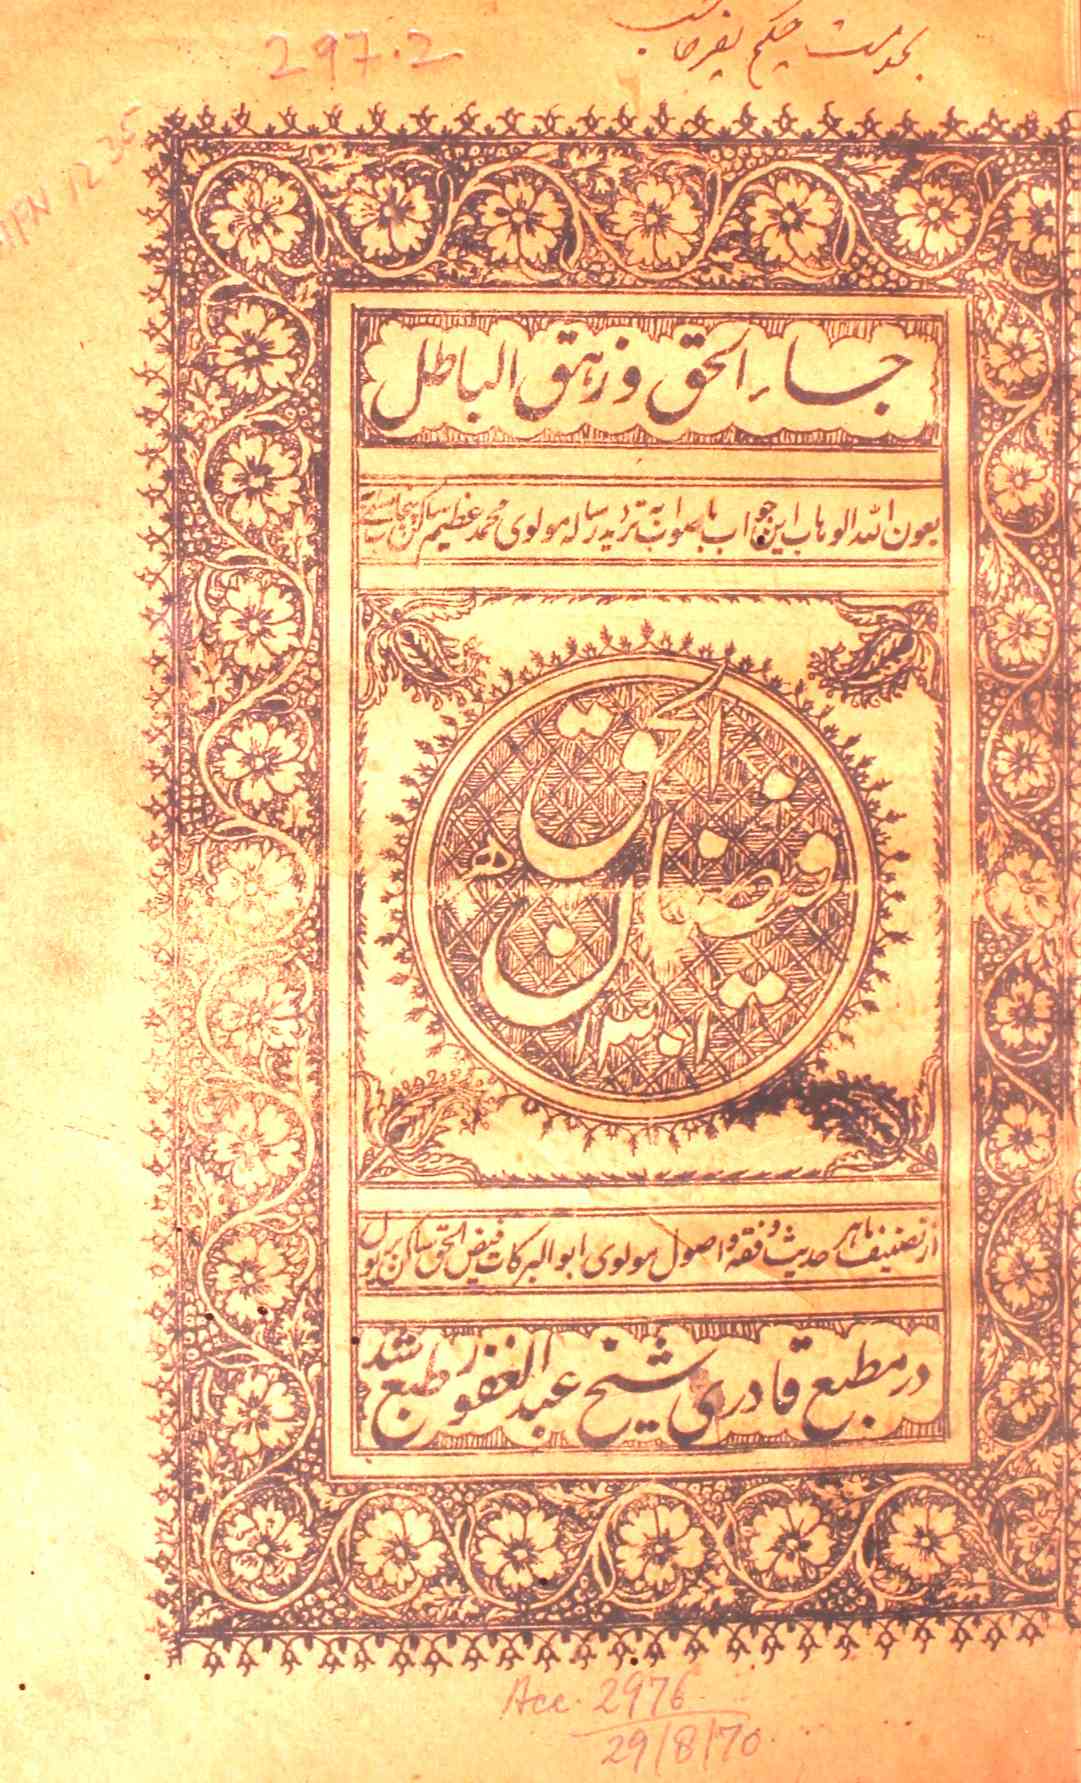 بخدمت حکیم
297.2
1235
جاء الحق وزہق الباطل
بعون اللہ الوہاب این جواب باصواب بہ تردید رسالہ مولوی محمد عظیم ساکن
فیضان الحق
ھ ۱۳۰۱
از تصنیف ماہر حدیث و فقہ و اصول مولوی ابوالبرکات فیض الحق ساکن
در مطبع قادری شیخ عبدالغفور طبع شد
Acc. 2976
29/8/70